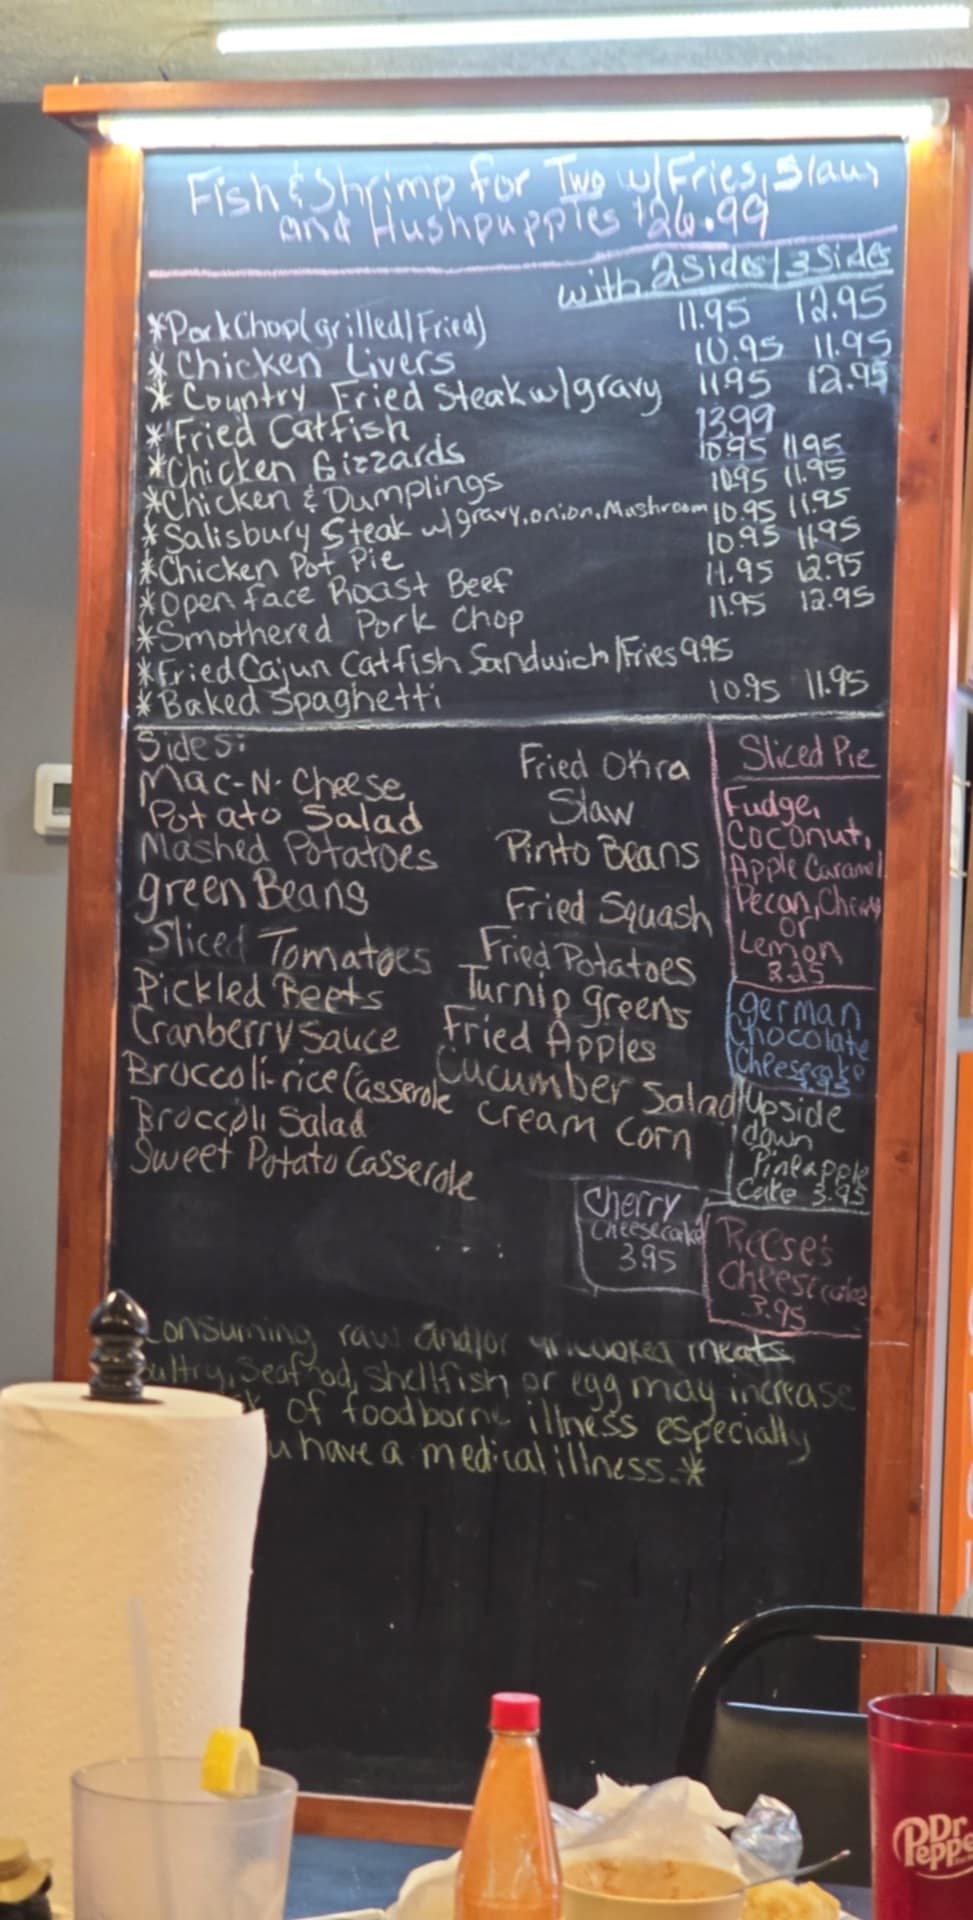 Fish & Shrimp for Two w/Fries, Slaw,
and Hushpuppies $26.99
with 2 Sides | 3 Sides
*Pork Chop (grilled/Fried) 11.95 12.95
* Chicken Livers 10.95 11.95
* Country Fried Steak w/gravy 11.95 12.95
* Fried Catfish 13.99
*Chicken Gizzards 10.95 11.95
*Chicken & Dumplings 10.95 11.95
*Salisbury Steak w/gravy, onion, Mushroom 10.95 11.95
*Chicken Pot Pie 10.95 11.95
*Open face Roast Beef 11.95 12.95
*Smothered Pork Chop 11.95 12.95
*Fried Cajun Catfish Sandwich/Fries 9.95
*Baked Spaghetti 10.95 11.95
Sides:
Mac-N-Cheese
Potato Salad
Mashed Potatoes
green Beans
Sliced Tomatoes
Pickled Beets
Cranberry Sauce
Broccoli-rice Casserole
Broccoli Salad
Sweet Potato Casserole
Fried Okra
Slaw
Pinto Beans
Fried Squash
Fried Potatoes
Turnip greens
Fried Apples
Cucumber Salad
Cream Corn
Sliced Pie
Fudge,
Coconut,
Apple Caramel
Pecan, Cherry
or
Lemon
3.25
german
Chocolate
Cheesecake
3.95
Upside
down
Pineapple
Cake 3.95
Cherry
Cheesecake
3.95
Reese's
Cheesecake
3.95
Consuming raw and/or uncooked meats
ultry, Seafood, shellfish or egg may increase
k of foodborne illness especially
u have a medical illness.*
Dr
Peppe